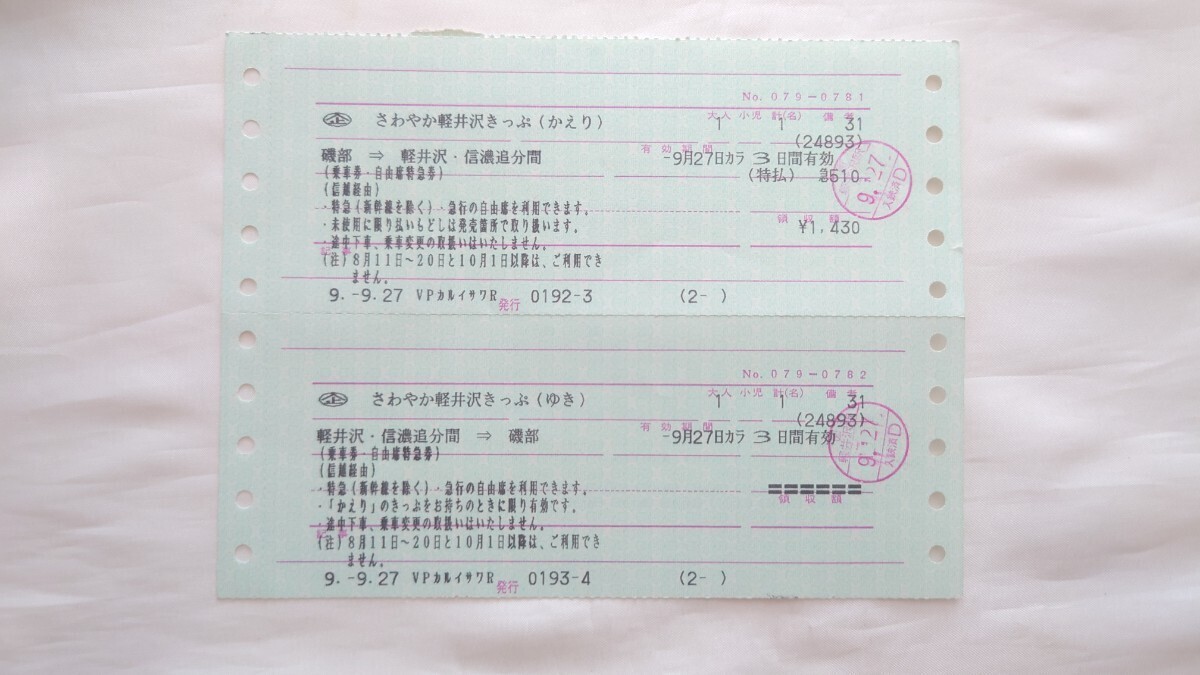 No. 079-0781
大人 小児 計(名) 備考
企 さわやか軽井沢きっぷ(かえり) 1 1 31
(24893)
有効期間
磯部 ⇒ 軽井沢・信濃追分間 -9月27日カラ 3日間有効
(乗車券・自由席特急券) (特払) 急510
(信越経由)
・特急(新幹線を除く)・急行の自由席を利用できます。
領収額
・未使用に限り払いもどしは発売箇所で取り扱います。 ¥1,430
・途中下車、乗車変更の取扱いはいたしません。
記事
(注)8月11日〜20日と10月1日以降は、ご利用でき
ません。
9.-9.27 VPカルイサワR 発行 0192-3 (2- )
9.-9.27.
入鋏済D
No. 079-0782
大人 小児 計(名) 備考
企 さわやか軽井沢きっぷ(ゆき) 1 1 31
(24893)
有効期間
軽井沢・信濃追分間 ⇒ 磯部 -9月27日カラ 3日間有効
(乗車券・自由席特急券)
(信越経由)
・特急(新幹線を除く)・急行の自由席を利用できます。 ======
領収額
・「かえり」のきっぷをお持ちのときに限り有効です。
・途中下車、乗車変更の取扱いはいたしません。
記事
(注)8月11日〜20日と10月1日以降は、ご利用でき
ません。
9.-9.27 VPカルイサワR 発行 0193-4 (2- )
軽井沢
9.-9.27.
入鋏済D